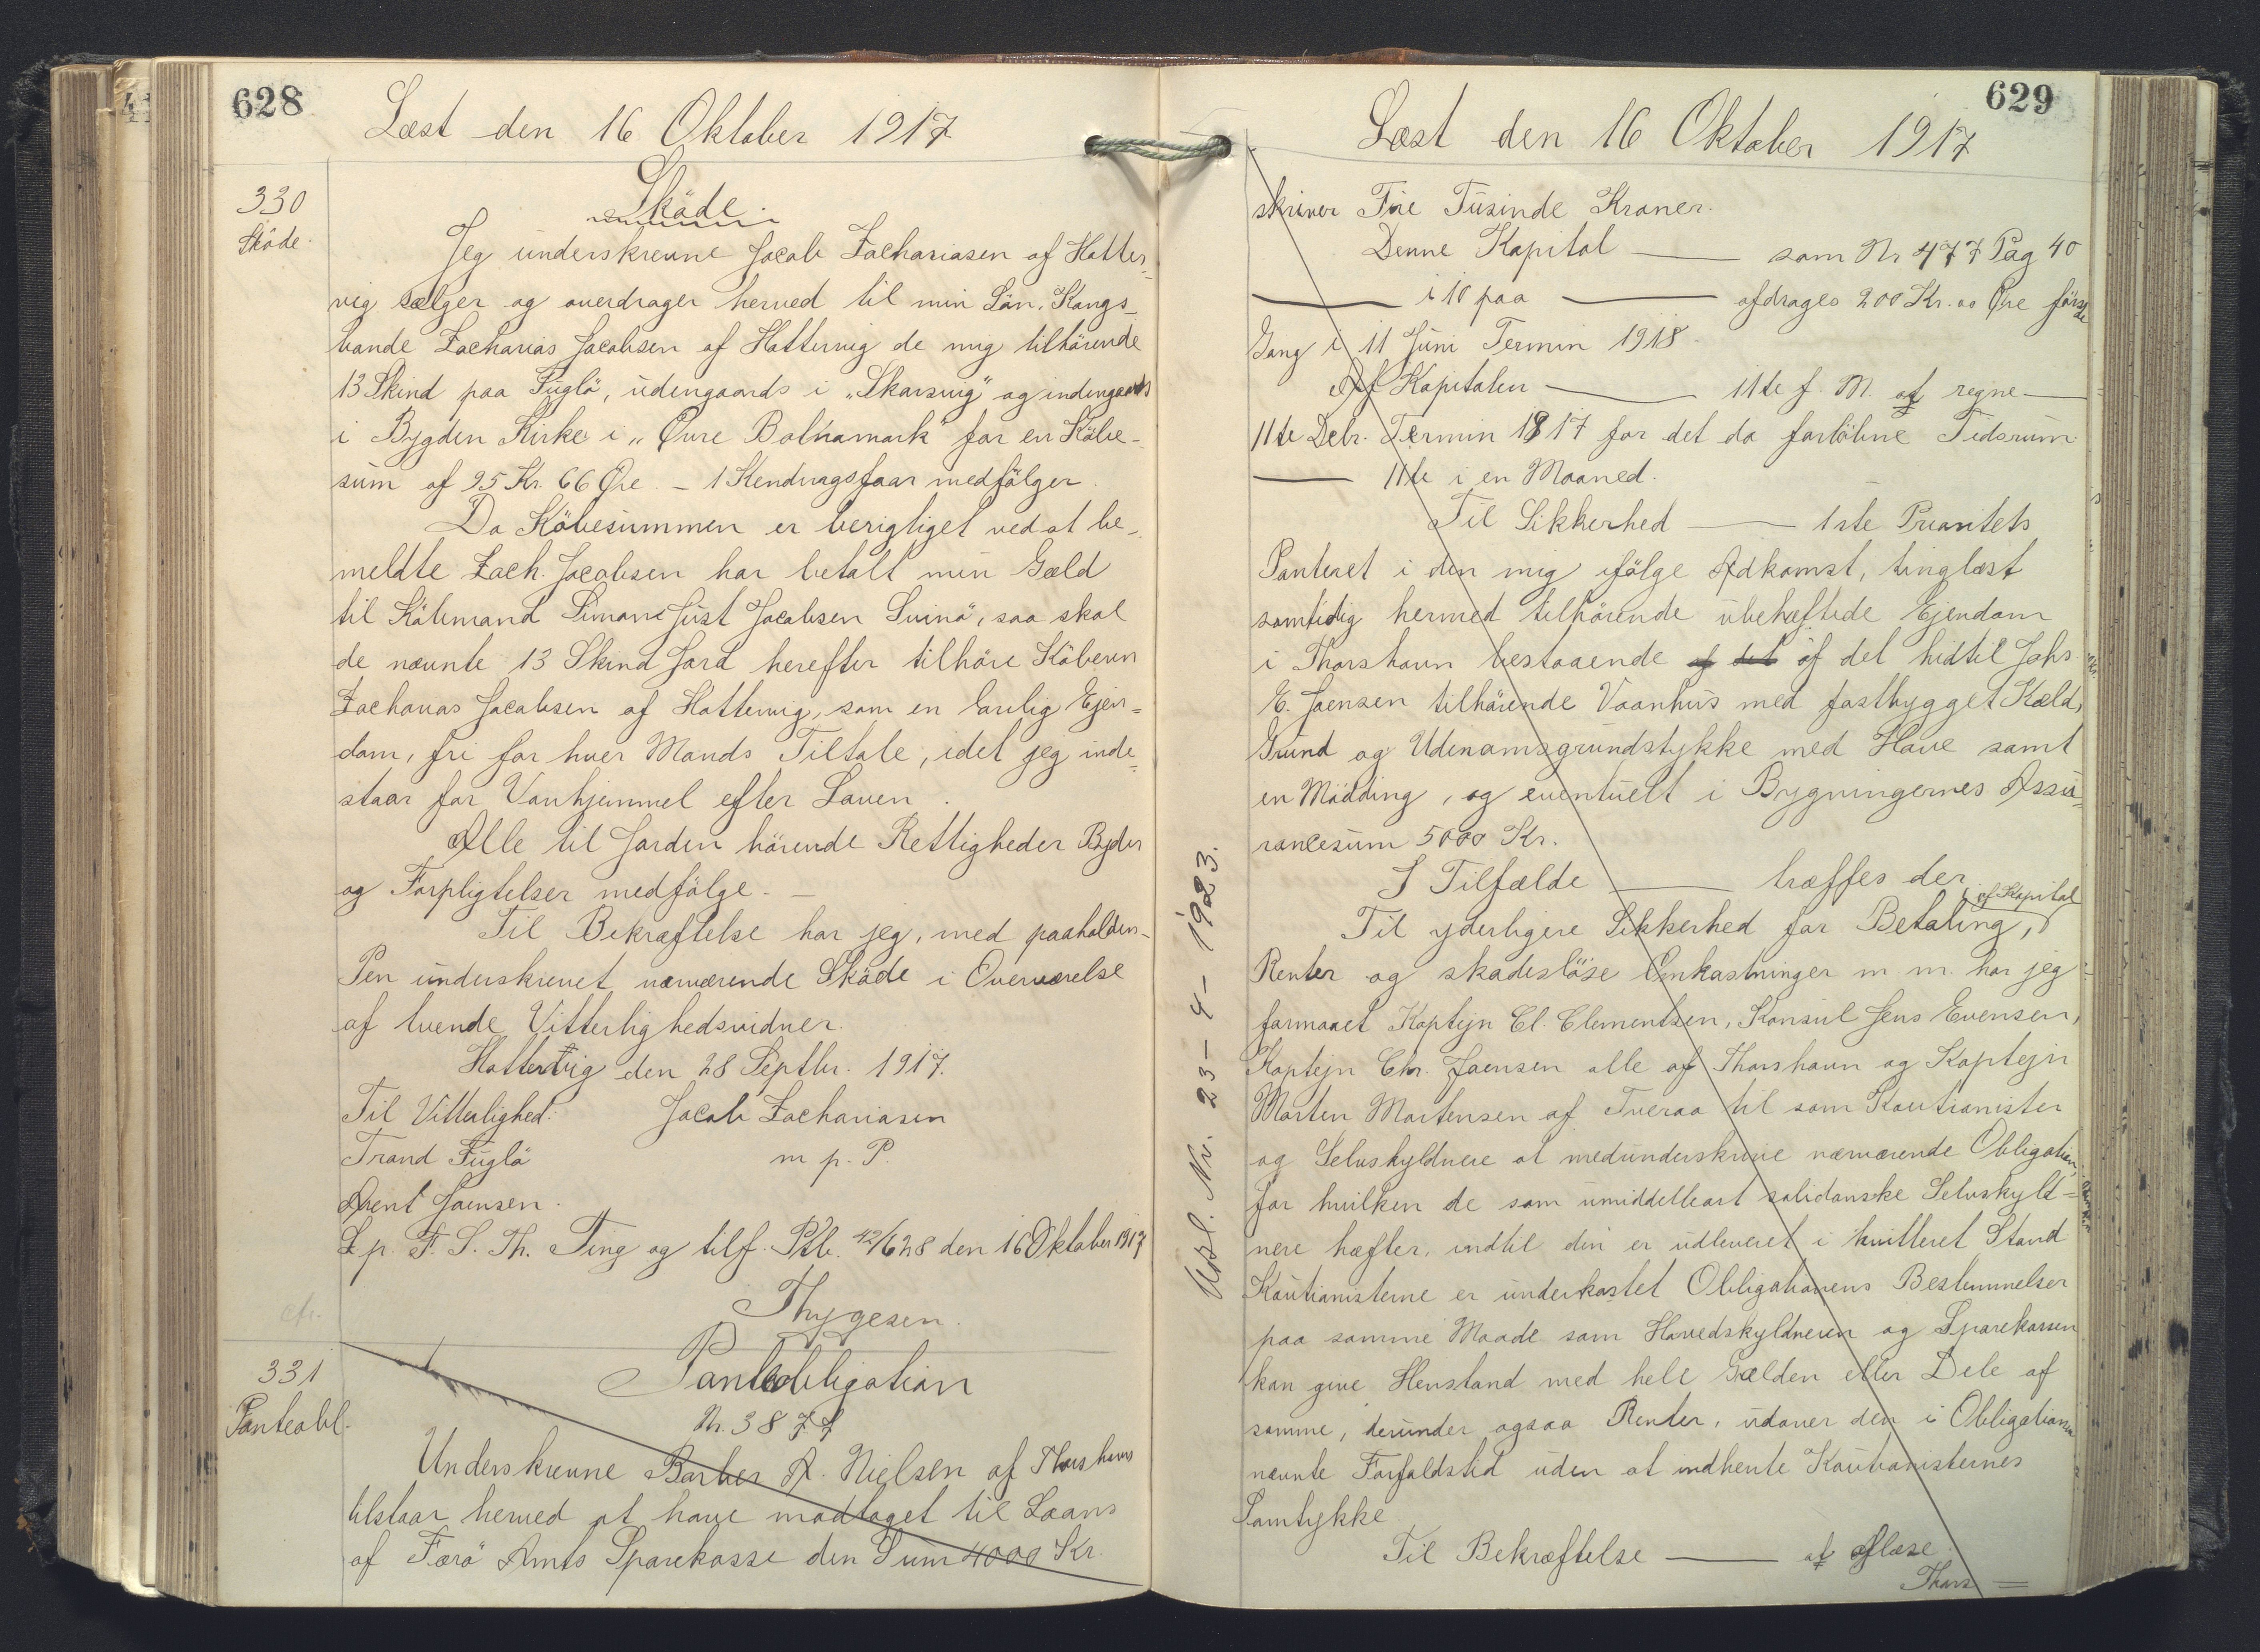 628
Læst den 16 Oktober 1917
330
Sköde.
Sköde.
Jeg underskrevne Jacob Zachariasen af Hatter-
vig sælger og overdrager herved til min Sön, Kongs-
bonde Zacharias Jacobsen af Hattervig de mig tilhörende
13 Skind paa Fuglö, udengaards i „Skarsvig" og indengaards
i Bygden Kirke i „Övre Bolhamark" for en Köbe-
sum af 95 Kr. 66 Øre. – 1 Kendragsfaar medfölger.
Da Köbesummen er berigtiget ved at be-
meldte Zach. Jacobsen har betalt min Gæld
til Köbmand Simon Just Jacobsen Svinö, saa skal
de nævnte 13 Skind Jord herefter tilhöre Köberen
Zacharias Jacobsen af Hattervig, som en lovlig Ejen=
dom, fri for hver Mands Tiltale, idet jeg inde=
staar for Vanhjemmel efter Loven.
Alle til Jorden hörende Rettigheder Byder
og Forpligtelser medfölge. –
Til Bekræftelse har jeg, med paaholden-
Pen underskrevet nærværende Sköde i Overværelse
af tvende Vitterlighedsvidner.
Hattervig den 28 Septbr. 1917.
Til Vitterlighed: Jacob Zachariasen
Trond Fuglö m. p. P.
Arent Joensen.
L. p. F. S. Th. Ting og tilf. Ptb. 42/628 den 16 Oktober 1917
Thygesen.
cfr.
331
Panteobl.
Panteobligation
Nr. 3877
Underskrevne Barber A. Nielsen af Thorshavn
tilstaar herved at have modtaget til Laans
af Færö Amts Sparekasse den Sum 4000 Kr.
629
Læst den 16 Oktober 1917
skriver Fire Tusinde Kroner.
Denne Kapital — som Nr 477 Pag 40
— i 10 paa — afdrages 200 Kr. 00 Øre förste
Gang i 11 Juni Termin 1918.
Af Kapitalen — 11te f. M. at regne —
11te Debr. Termin 1917 for det da forlöbne Tidsrum
— 11te i en Maaned.
Til Sikkerhed — 1ste Prioritets
Panteret i den mig ifölge Adkomst, tinglæst
samtidig hermed tilhörende ubehæftede Ejendom
i Thorshavn bestaaende af det af det hidtil Johs.
E. Joensen tilhörende Vaanhus med fastbygget Kæld,
Grund og Udenomsgrundstykke med Have samt
en Mödding, og eventuelt i Bygningernes Assu=
rancesum 5000 Kr.
I Tilfælde — træffes der.
Til yderligere Sikkerhed for Betaling, af Kapital
Renter og skadeslöse Omkostninger m m. har jeg
formaaet Kaptejn Cl. Clementsen, Konsul Jens Evensen,
Kaptejn Chr. Joensen alle af Thorshavn og Kaptejn
Morten Mortensen af Tveraa til som Kautionister
og Selvskyldnere at medunderskrive nærværende Obligation,
for hvilken de som umiddelbart solidariske Selvskyld=
nere hæfter, indtil den er udleveret i kvitteret Stand
Kautionisterne er underkastet Obligationens Bestemmelser
paa samme Maade som Hovedskyldneren og Sparekassen
kan give Henstand med hele Gælden eller Dele af
samme, derunder ogsaa Renter, udover den i Obligationen
nævnte Forfaldstid uden at indhente Kautionisternes
Samtykke
Til Bekræftelse — at aflæse.
Thors=
Udsl. Nr. 23-4-1923.